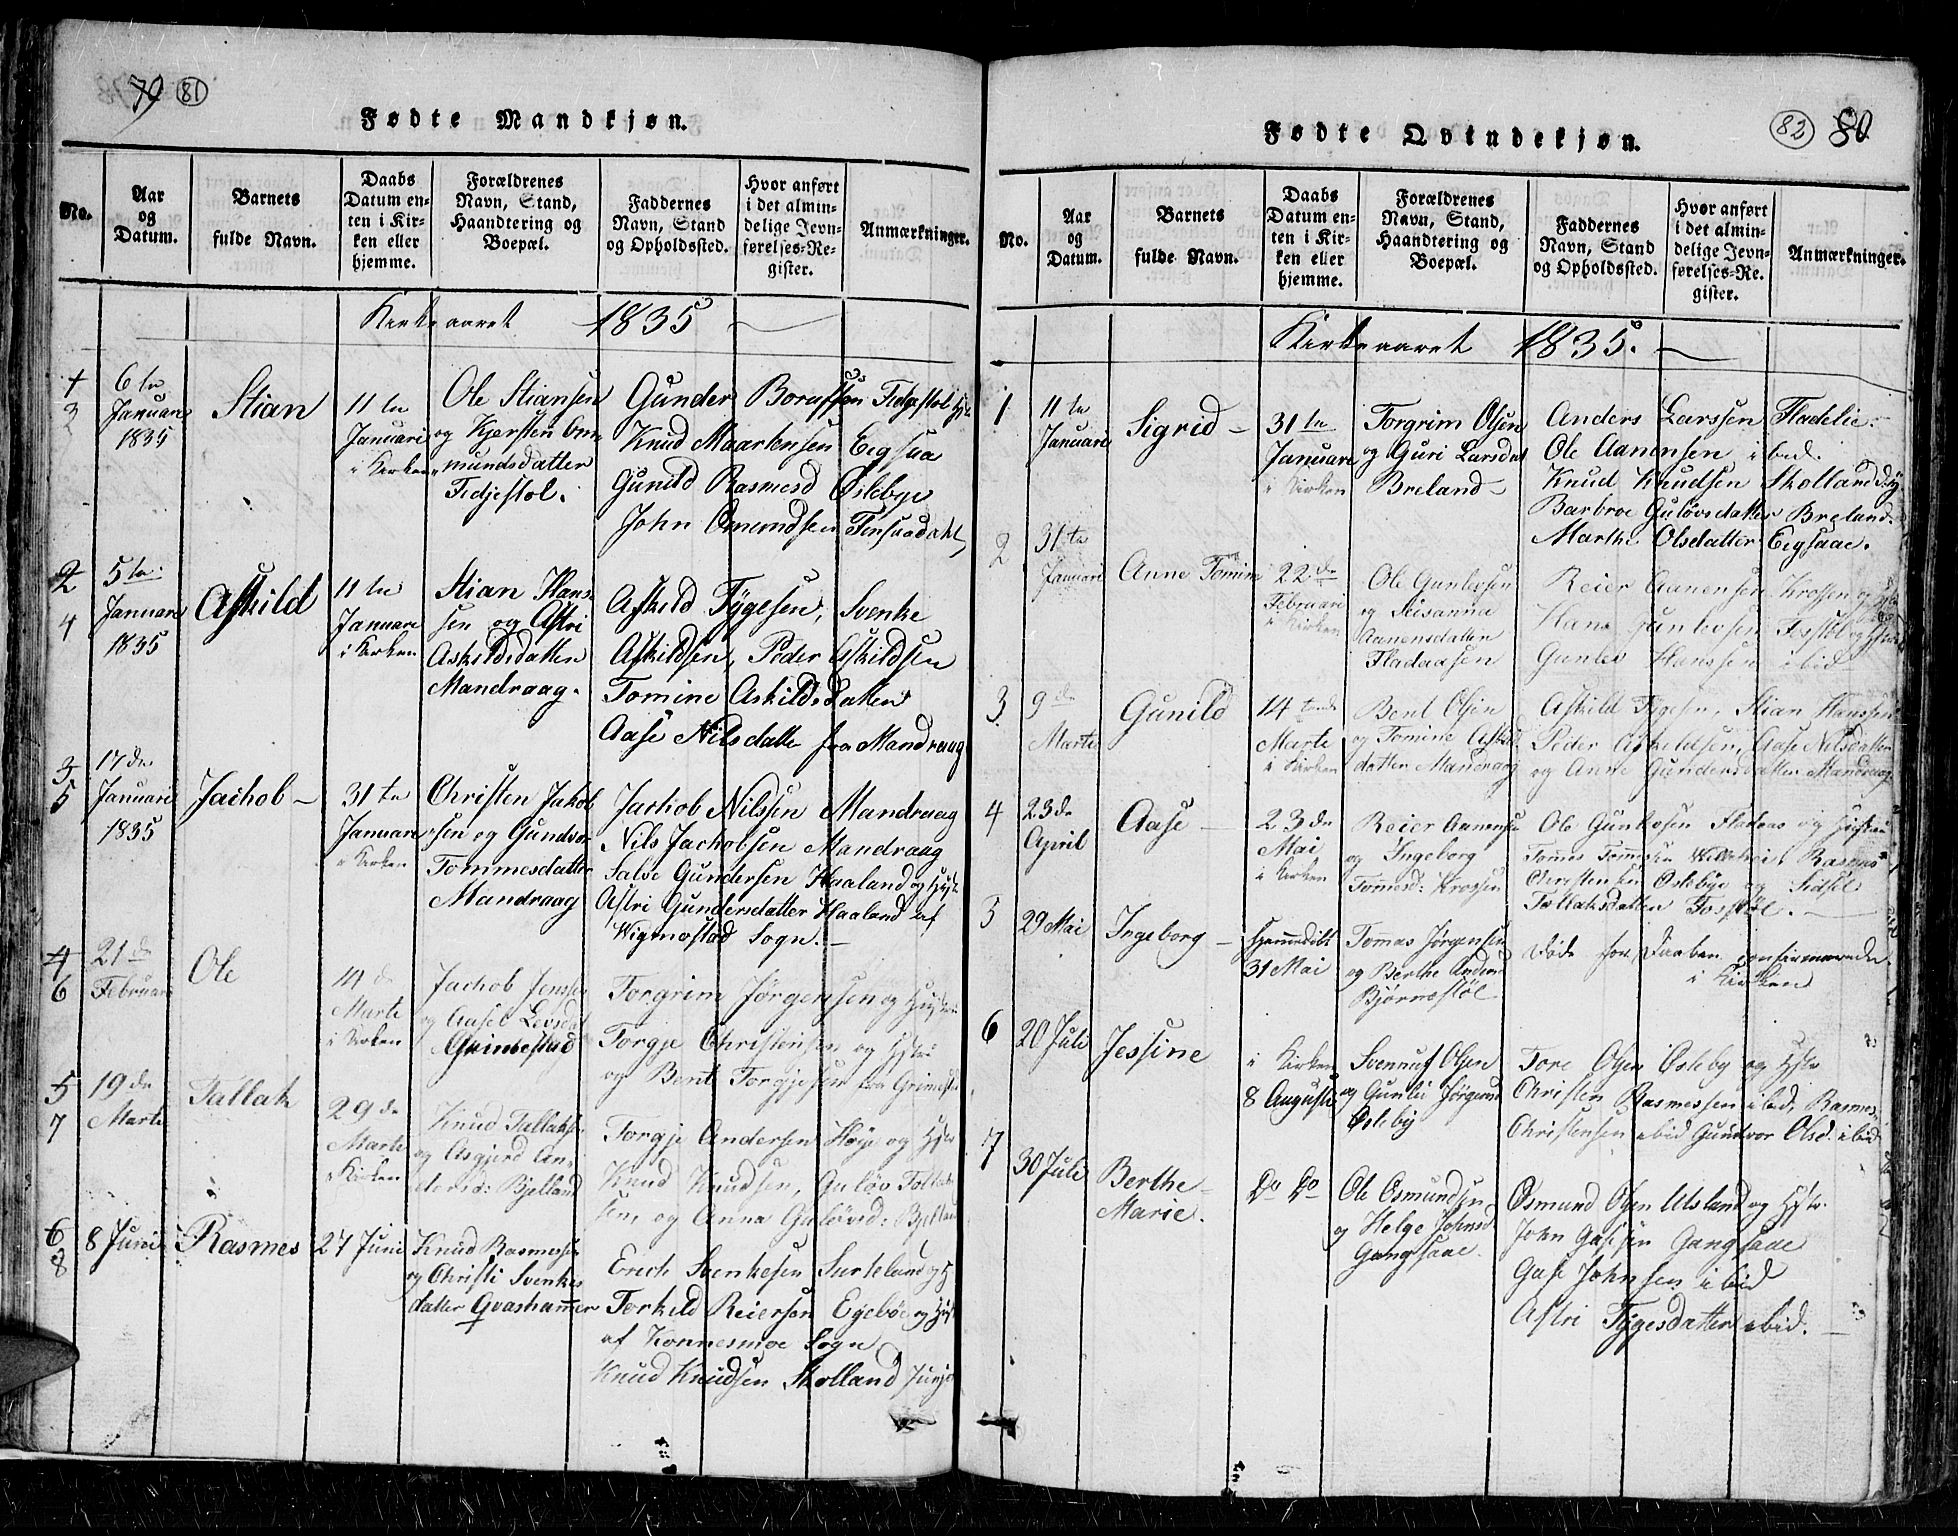 79 81
Fødte Mandkjøn.
No.
Aar
og
Datum.
Barnets
fulde Navn.
Daabs
Datum en-
ten i Kir-
ken eller
hjemme.
Forældrenes
Navn, Stand,
Haandtering og
Boepæl.
Faddernes
Navn, Stand
og Opholdssted.
Hvor anført
i det almin-
delige Jevn-
førelses-Re-
gister.
Anmærkninger.
Kirkeaaret 1835
1
3
6te
Januari
1835
Stian
11te
Januari
i Kirken
Ole Stiansen
og Kjersten
mundsdatter
Fidjestol.
Gunder
Knud Maartensen Eegsaa
Gunild Rasmesd Øslebye
John
2
4
5te
Januari
1835
Askild
11te
Januari
i Kirken
Stian Hans-
sen og Astri
Askildsdatter
Mandraag.
Askild Tygesen, Svenke
Askildsen, Peder Askildsen
Tomine Askildsdatter
Aase Nilsdatte fra Mandraag
3
5
17de
Januari
1835
Jachob
31te
Januari
i Kirken
Christen Jakob-
sen og Gundvor
Tommesdatter
Mandraag
Jachob Nilssen Mandraag
Nils Jachobsen Mandraag
Salve Gundersen Haaland og Hst
Astri Gundersdatter Haaland af
Wigmostad Sogn.
4
6
21de
Februari
Ole
14de
Marte
i Kirken
Jachob Jenssen
og Aasel Levsdat
Grimestad
Torgrim Jørgensen og
Torgje Christensen og Hstru
og Bent Torgjesen fra Grimest
5
7
19de
Marte
Tallak
29de
Marte
i Kirken
Knud Tallaks-
og Asgjerd An-
dersd: Bjelland
Torgje Andersen Høye og Hstr
Knud Knudsen, Guløv Tallak-
sen, og Anna Guløvsd: Bjelland
6
8
8 Juni
Rasmes
27 Juni
Knud Rasmessen
og Christi Svenkes
datter Qvashammer
Erich Svenkesen Surkland og H
Torkild Reiersen Egebøe og Hst
af Konnesmoe Sogn
Knud Knudsen Skolland
82 80
Fødte Qvindekjøn.
No.
Aar
og
Datum.
Barnets
fulde Navn.
Daabs
Datum en-
ten i Kir-
ken eller
hjemme.
Forældrenes
Navn, Stand,
Haandtering og
Boepæl.
Faddernes
Navn, Stand
og Opholdssted.
Hvor anført
i det almin-
delige Jevn-
førelses-Re-
gister.
Anmærkninger.
Kirkeaaret 1835.
1
11te
Januari
Sigrid
31te
Januari
i Kirken
Torgrim Olsen
og Guri Larsdat
Breland
Anders Larssen Fladelie
Ole Aanensen ibid.
Knud Knudsen Skolland
Barbroe Guløvsdatter Breland.
Marthe Olsdatter Eegsaae.
2
31te
Januari
Anne Tomine
22de
Februari
i Kirken
Ole Gunlevsen
og Susanna
Aanensdatter
Fladaasen
Reier Aanensen Krossen og Hst
Hans Gunlevsen Fosstøl og
Gunlev Hanssen ibid
3
9de
Marte
Gunild
14tende
Marte
i Kirken
Bent Olsen
og Tomine Askild
datter Mandraag
Askild Tygesen, Stian Hanssen
Peder Askeldsen, Aase Nilsdatter
og Anne Gundersdatter Mandraag
4
23de
April
Aase
23de
Mai
i Kirken
Reier Aanensen
og Ingeborg
Tomesd: Krossen
Ole Gunlevsen Fladaas og Hustru
Tomes Tommesen Rasmus
Christensen Oslebye og Sidsel
Tallaksdatter Fosstøl.
5
29 Mai
Ingeborg
Hjemmedøbt
31 Mai
Tomas Jørgensen
og Berthe Anders
Bjørnestøl
døde før Daaben confirmerede
i Kirken
6
20 Juli
Jessine
i Kirken
8 Auguste
Svennuf Olsen
og Gunlu Jørgensd
Øsleby
Tore Olsen Øsleby og Hstr
Christen Rasmessen ibid, Rasmes
Christensen ibid Gundvor Olsd. ibid
7
30 Juli
Berthe
Marie.
Do Do
Ole Osmundsen
og Helge Johnsd
Gangsaae.
Osmund Olsen Usland og Hstr.
John Gasesen Gangsaae
Gase Johnsen ibid
Astri Tygesdatter ibid.